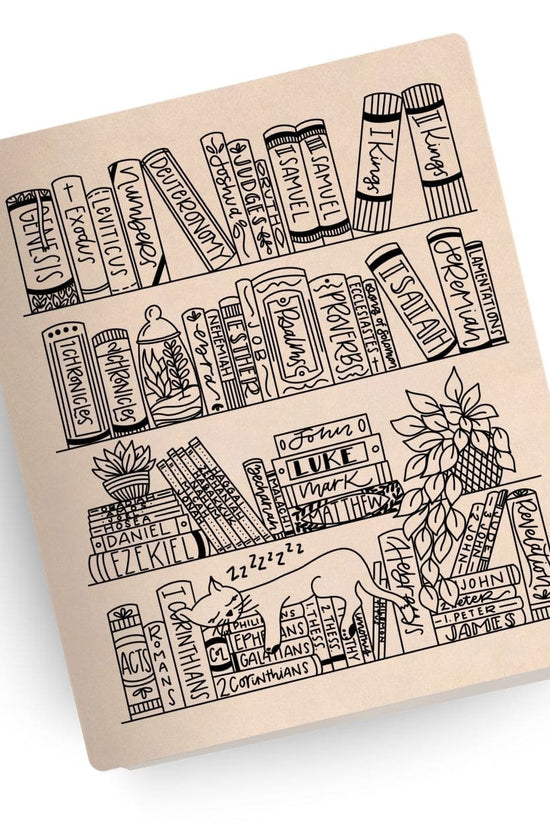 GENESIS
Exodus
LEVITICUS
Numbers
DEUTERONOMY
Joshua
JUDGES
RUTH
SAMUEL
SAMUEL
I Kings
II Kings
I CHRONICLES
CHRONICLES
ezra
NEHEMIAH
ESTHER
JOB
Psalms
PROVERBS
ECCLESIASTES
Song of Solomon
ISAIAH
Jeremiah
LAMENTATIONS
DANIEL
EZEKIEL
HAGGAI
MALACHI
John
LUKE
mark
MATTHEW
ZZZZZZZ
ACTS
ROMANS
I CORINTHIANS
GALATIANS
2 Corinthians
1 THESS.
2 THESS.
Hebrews
JOHN
2 Peter
1. PETER
JAMES
3 JOHN
JUDE